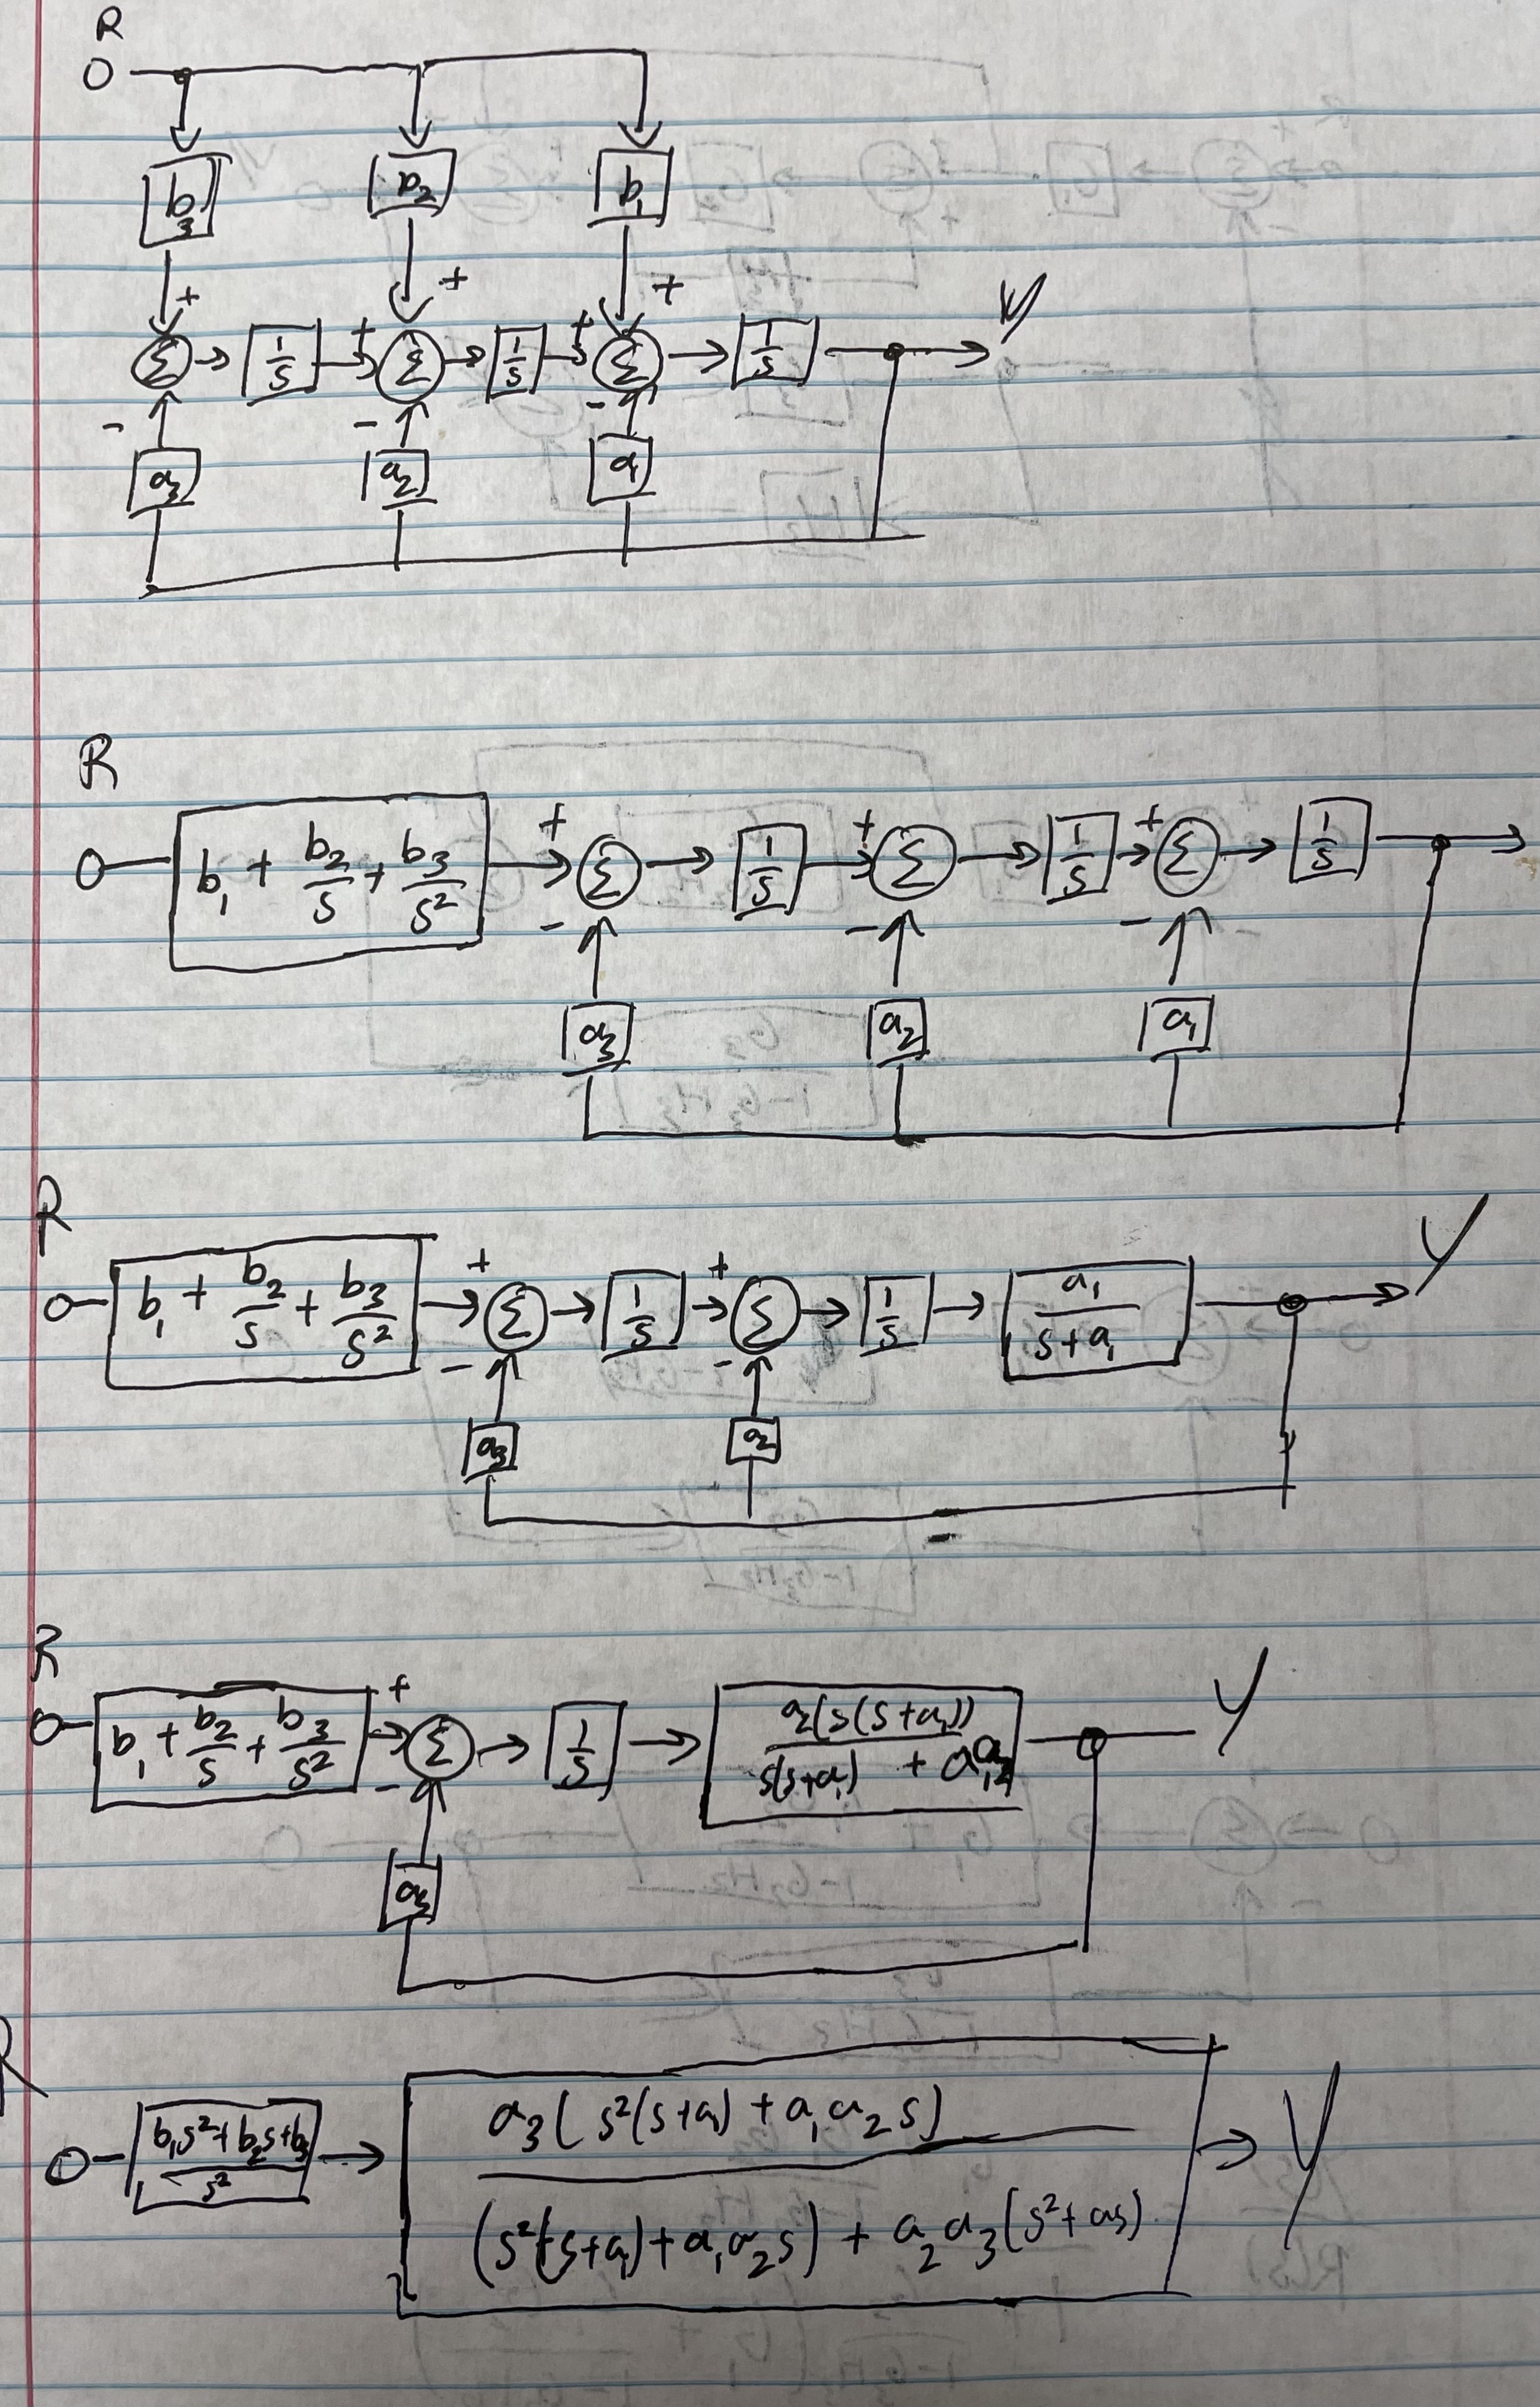 R
b3 a2 b1
+ + +
Σ 1/s + Σ 1/s + Σ 1/s Y
- - -
a3 a2 a1
R
b1 + b2/s + b3/s² + Σ 1/s + Σ 1/s + Σ 1/s
- - -
a3 a2 a1
R Y
b1 + b2/s + b3/s² + Σ 1/s + Σ 1/s a1/(s+a1)
- -
a3 a2
R Y
b1 + b2/s + b3/s² + Σ 1/s a2(s(s+a1))/(s(s+a1) + a1a2)
-
a3
R
(b1s²+b2s+b3)/s² a3(s²(s+a1) + a1a2s)/((s²(s+a1)+a1a2s) + a2a3(s²+as)) Y